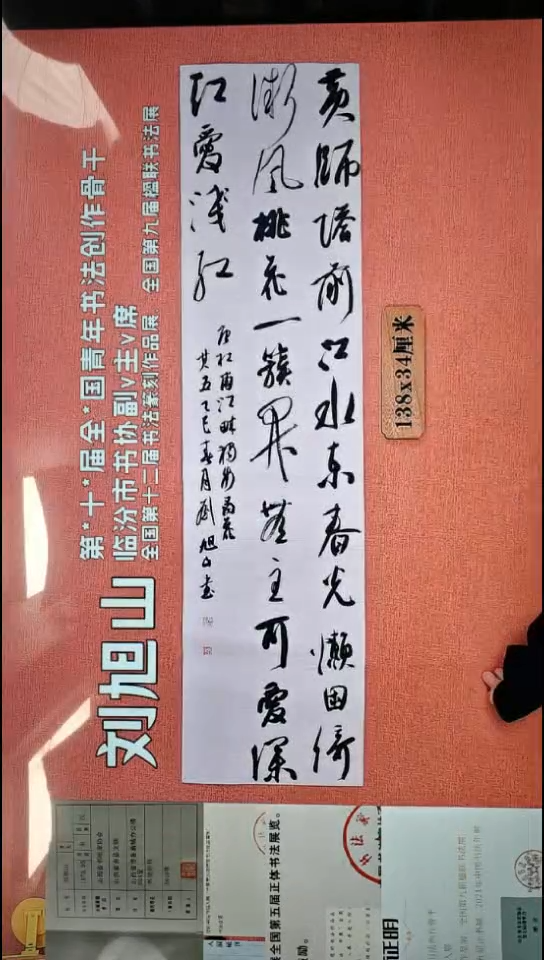 刘旭山
第*十*届全*国青年书法创作骨干
临汾市书协副v主v席
全国第十二届书法篆刻作品展 全国第九届楹联书法展
黄師塔前江水東春光懒困倚
微風桃花一簇開無主可愛深
紅愛浅紅
唐杜甫江畔独步尋花
其五乙巳春月劉旭山書
138x34厘米
全国第五届正体书法展览。
励。
证明